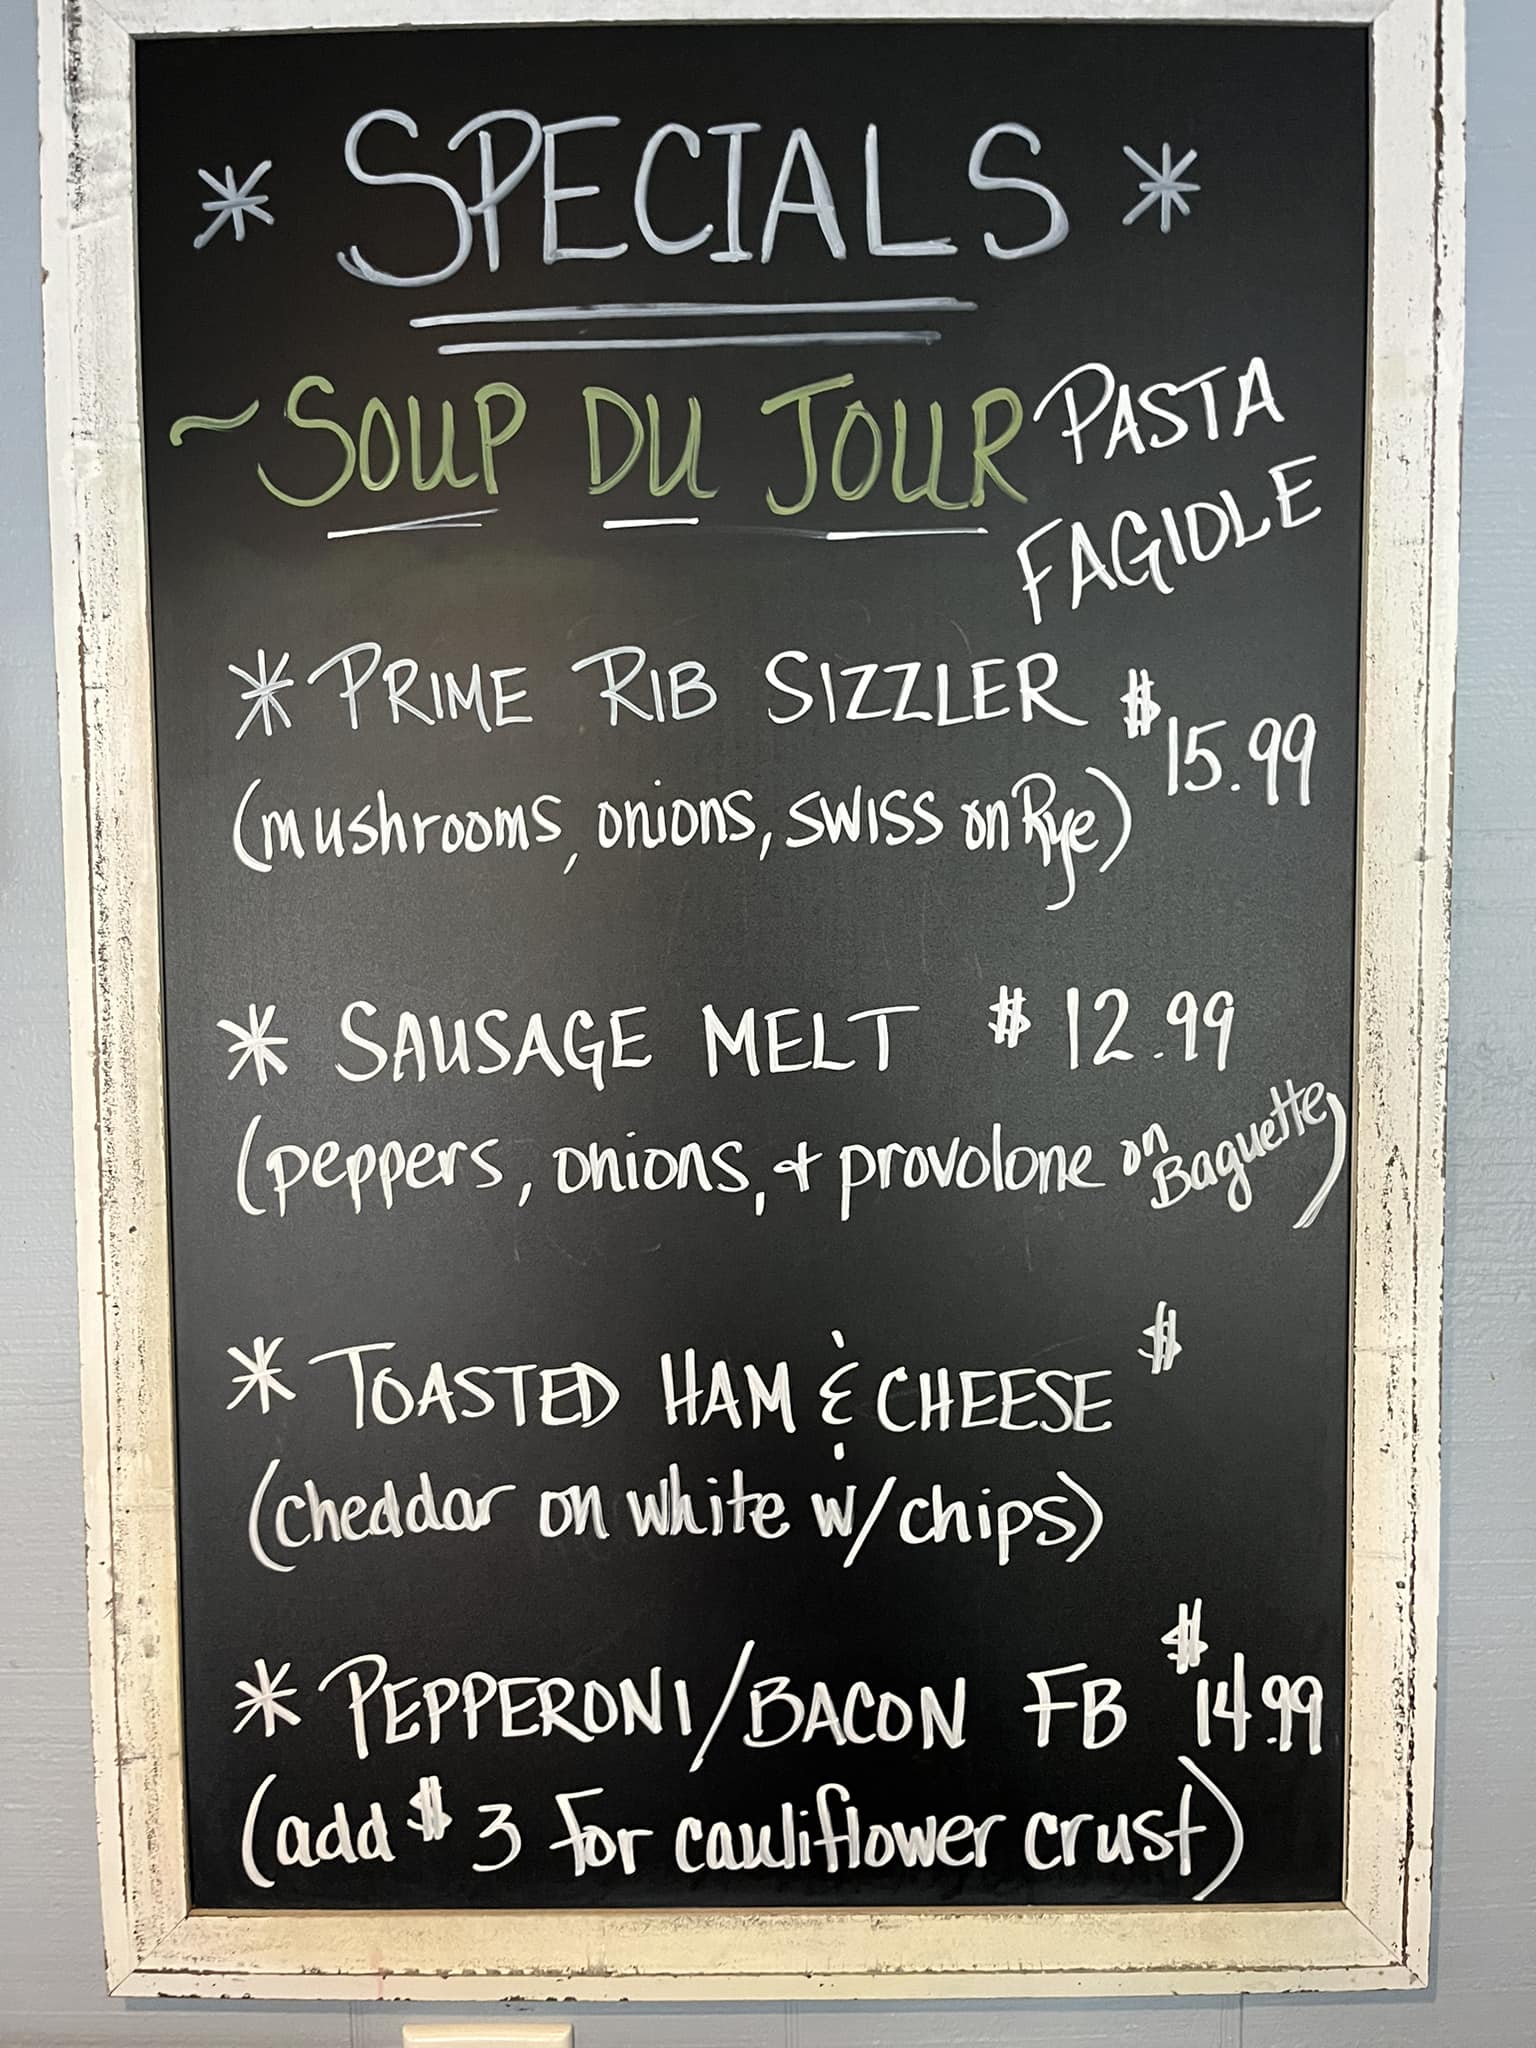 * SPECIALS *
~SOUP DU JOUR PASTA
FAGIOLE
* PRIME RIB SIZZLER $15.99
(mushrooms, onions, swiss on Rye)
* SAUSAGE MELT $12.99
(peppers, onions, + provolone on Baguette)
* TOASTED HAM & CHEESE $
(cheddar on white w/chips)
* PEPPERONI/BACON FB $14.99
(add $3 for cauliflower crust)